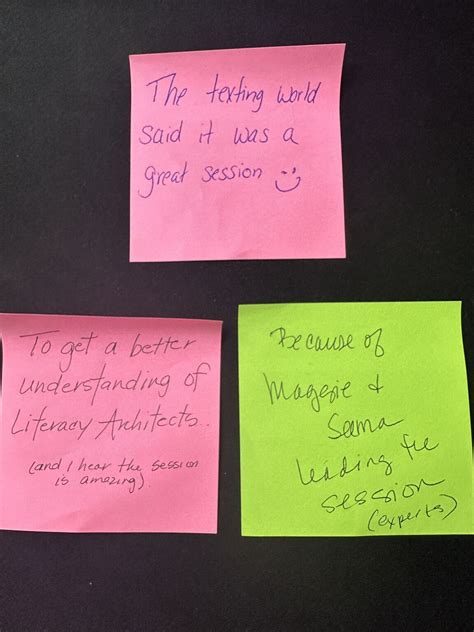 The texting world
said it was a
great session
To get a better
understanding of
Literacy Architects..
(and I hear the session
is amazing).
Because of
Maggie &
Seema
leading the
session
(experts)